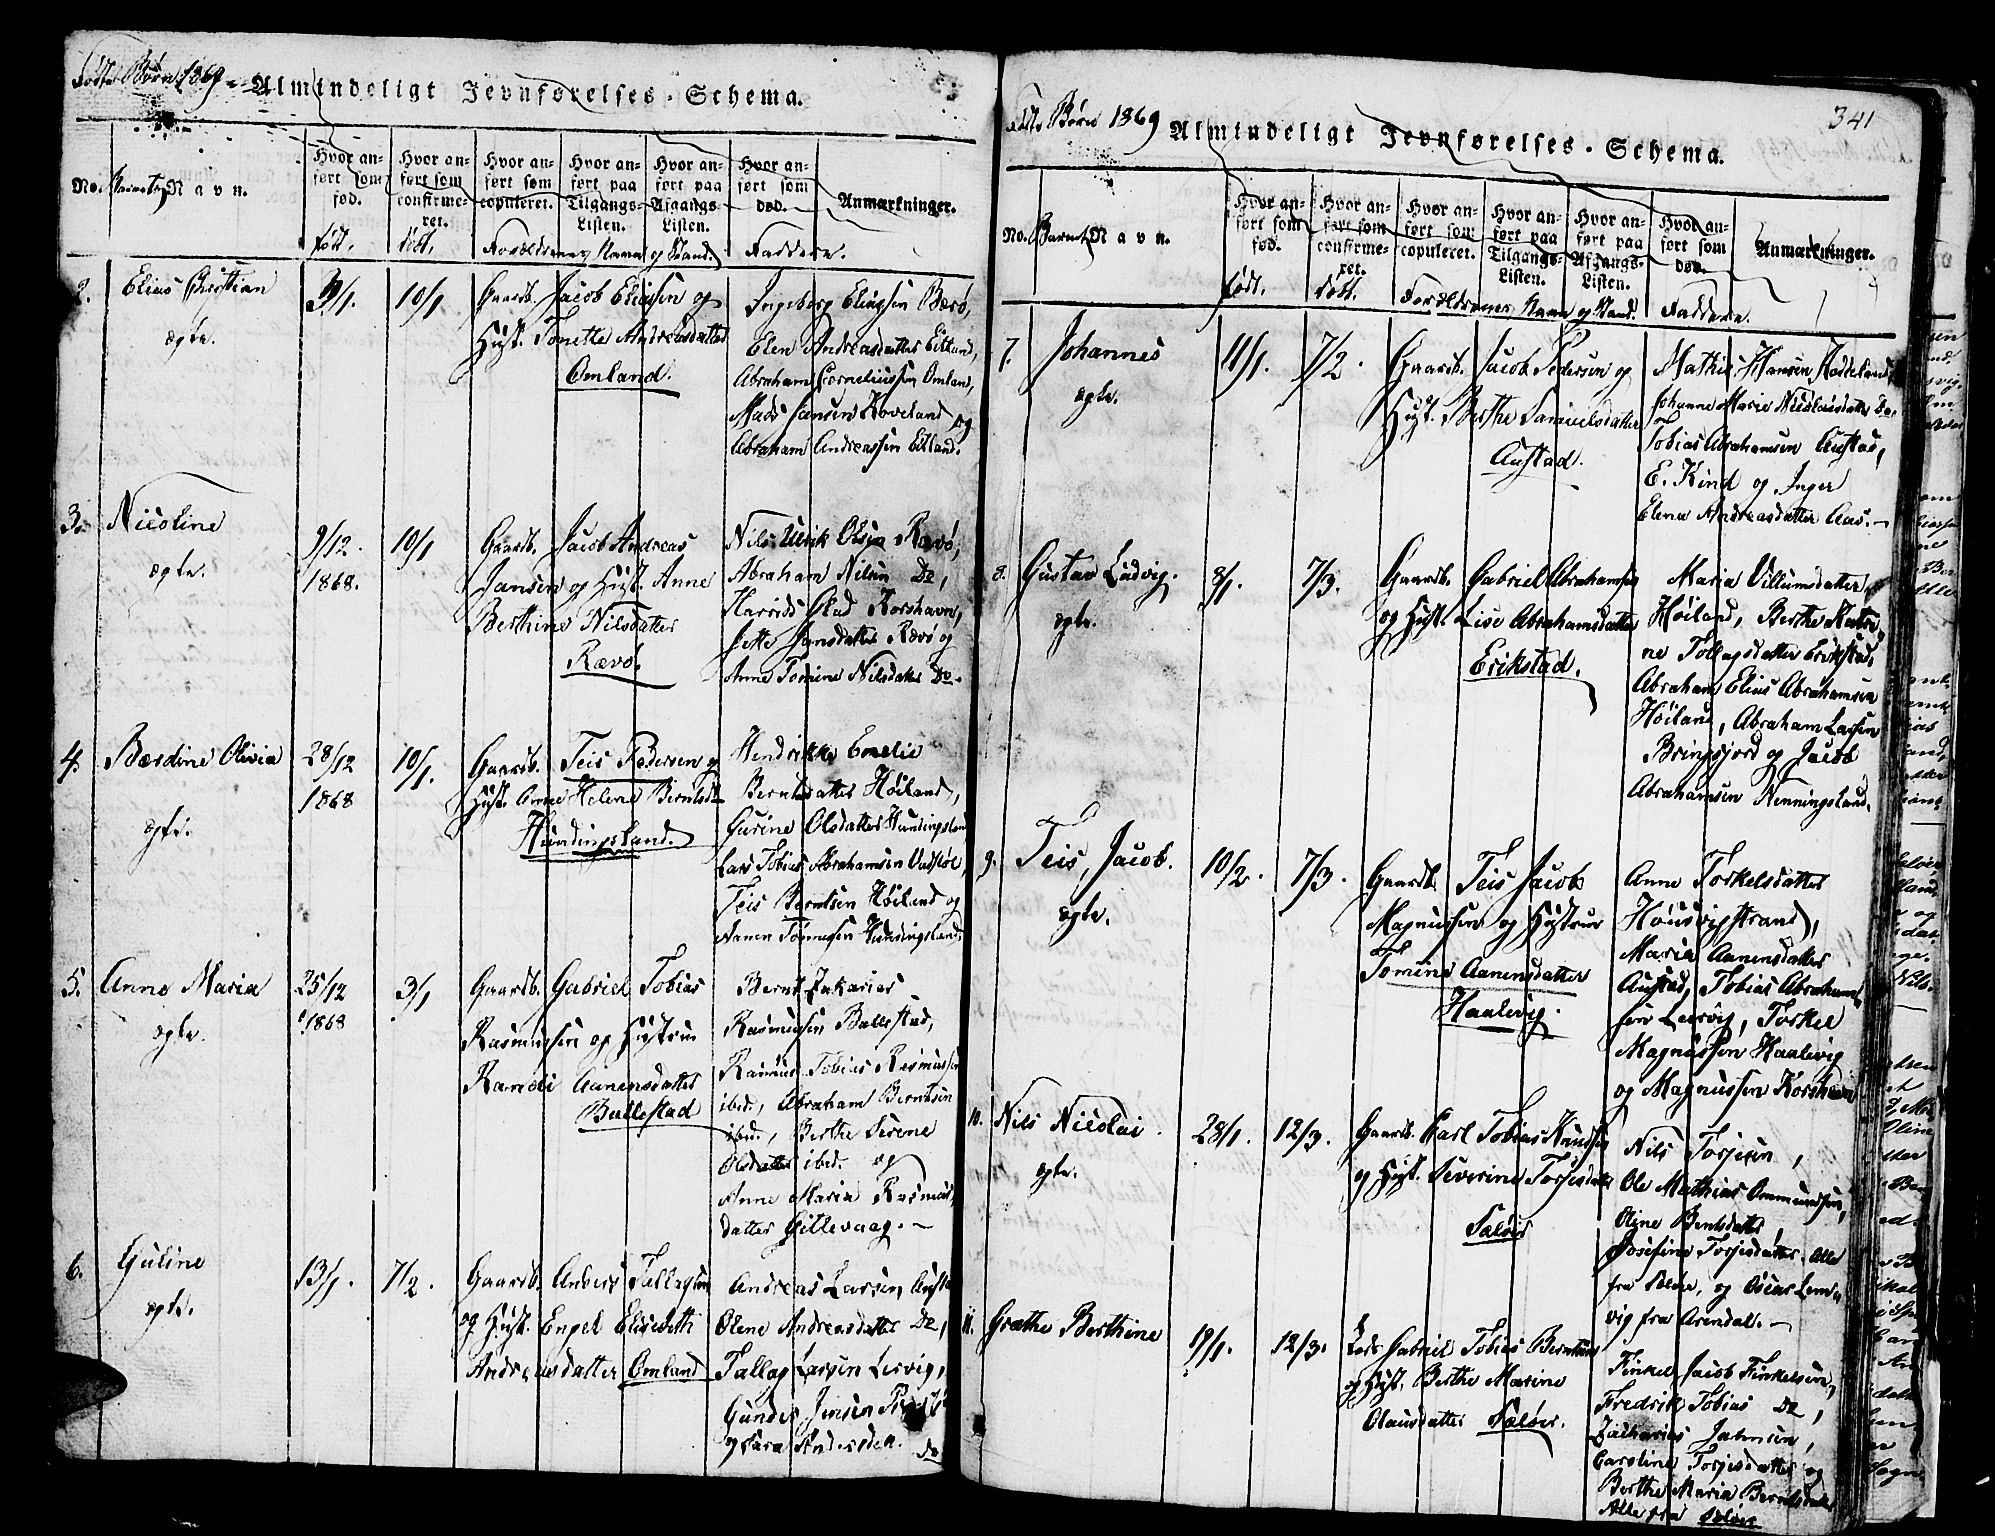 Fødte Børn 1869.
Almindeligt Jevnførelses-Schema.
No. Barnets Navn. Hvor anført som fød. Hvor anført som confirmeret. Hvor anført som copuleret. Hvor anført paa Tilgangs-Listen. Hvor anført paa Afgangs-Listen. Hvor anført som død. Anmærkninger.
født. døbt. Forældrenes Navn og Stand. Faddere.
2. Elias Christian 3/1. 10/1 Gaardb. Jacob Eliassen og Ingeborg Eliassen Rævø,
ægte. Hust. Tonette Andreasdatter Elen Andreasdatter Eitland,
Omland. Abraham Corneliussen Omland,
Mads Jansen Hoveland og
Abraham Andreassen Eitland.
3. Nicoline 9/12. 10/1 Gaardb. Jacob Andreas Nils Ulrik Olsen Rævø,
ægte. 1868. Jansen og Hust. Anne Abraham Nilsen Do,
Berthine Nilsdatter Korshavn,
Rævø. Jette Jansdatter Rævø og
Anne Tomine Nilsdatter Do.
4. Bærdine Olivia 28/12 10/1. Gaardb. Teis Pedersen og Hendrikke Emelie
1868 Hust. Anne Helene Berntsdtr Berntsdatter Høiland,
ægte. Hundingsland. Gurine Olsdatter Hundingsland
Lars Tobias Abrahamsen
Teis Berntsen Høiland og
Aanen Tønnesen Hundingsland.
5. Anne Maria 25/12 3/1 Gaardb. Gabriel Tobias Bernt Zakarias
ægte. 1868 Rasmussen og Hustru Rasmussen Ballestad,
Randi Aanensdatter Rasmus Tobias Rasmussen
Ballestad ibid., Abraham Berntsen
ibid., Berthe Serene
Olsdatter ibid. og
Anne Maria Rasmus
datter Gittevaag.
6. Guline 13/1. 7/2. Gaardb. Anders Tallagsen Andreas Larsen Austad
ægte. og Hust. Engel Elisebeth Olene Andreasdatter Do,
Andreasdatter Omland Tallag Larsen Lervig,
Gunder Jensen
og Sara Andersdatt. Do
341
Født. Børn 1869
Almindeligt Jevnførelses-Schema.
No. Barnets Navn. Hvor anført som fød. Hvor anført som confirmeret. Hvor anført som copuleret. Hvor anført paa Tilgangs-Listen. Hvor anført paa Afgangs-Listen. Hvor anført som død. Anmærkninger.
født. døbt. Forældrenes Navn og Stand. Faddere.
7. Johannes 11/1. 7/2. Gaardb. Jacob Pedersen og Mathis Hansen
ægte. Hust. Berthe Samuelsdatter Johanne Marie Nicolaisdatter Do.
Austad. Tobias Abrahamsen Austad,
E. Kind og Inger
Elena Andreasdatter Aas.
8. Gustav Ludvig. 8/1. 7/3. Gaardb. Gabriel Abrahamsen Maria Villumsdatter
ægte. og Hust. Lise Abrahamsdatter Høiland, Berthe Katri
Erikstad. ne Tollagsdatter Erikstad,
Abraham Elias Abrahamsen
Høiland, Abraham Larsen
Bringsjord og Jacob
Abrahamsen Nenningsland.
9. Teis Jacob. 10/2. 7/3. Gaardb. Teis Jacob Anne Torkelsdatter
ægte. Magnussen og Hustru Housvigstrand,
Tomine Aanensdatter Maria Aanensdatter
Haalevig. Austad, Tobias Abraham
sen Lervig, Torkel
Magnussen Haalevig
og Magnussen Korshavn
10. Nils Nicolai. 28/1. 12/3. Gaardb. Carl Tobias Knudsen Nils Torjesen,
ægte. og Hust. Severine Torjesdatter Ole Mathias Ommundsen,
Sæløer Oline Berntsdatter
Josefine Torjesdatter. Alle
fra Sæløe, og Oscar Lem
vig fra Arendal.
11. Grethe Berthine 19/1. 12/3. Lods Gabriel Tobias Berntsen Finkel Jacob Finkelsen,
og Hust. Berthe Marine Fredrik Tobias Do,
Olausdatter Sæløer. Zacharias Jahnsen,
Caroline Torjesdatter og
Berthe Maria Berntsdatter
Alle fra Sæløer